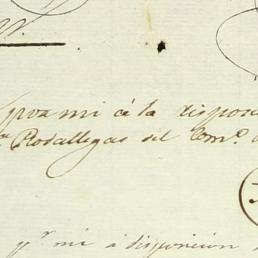 por mi á la disposi
Rodallegas del Com.º
p.r mi á disposicion